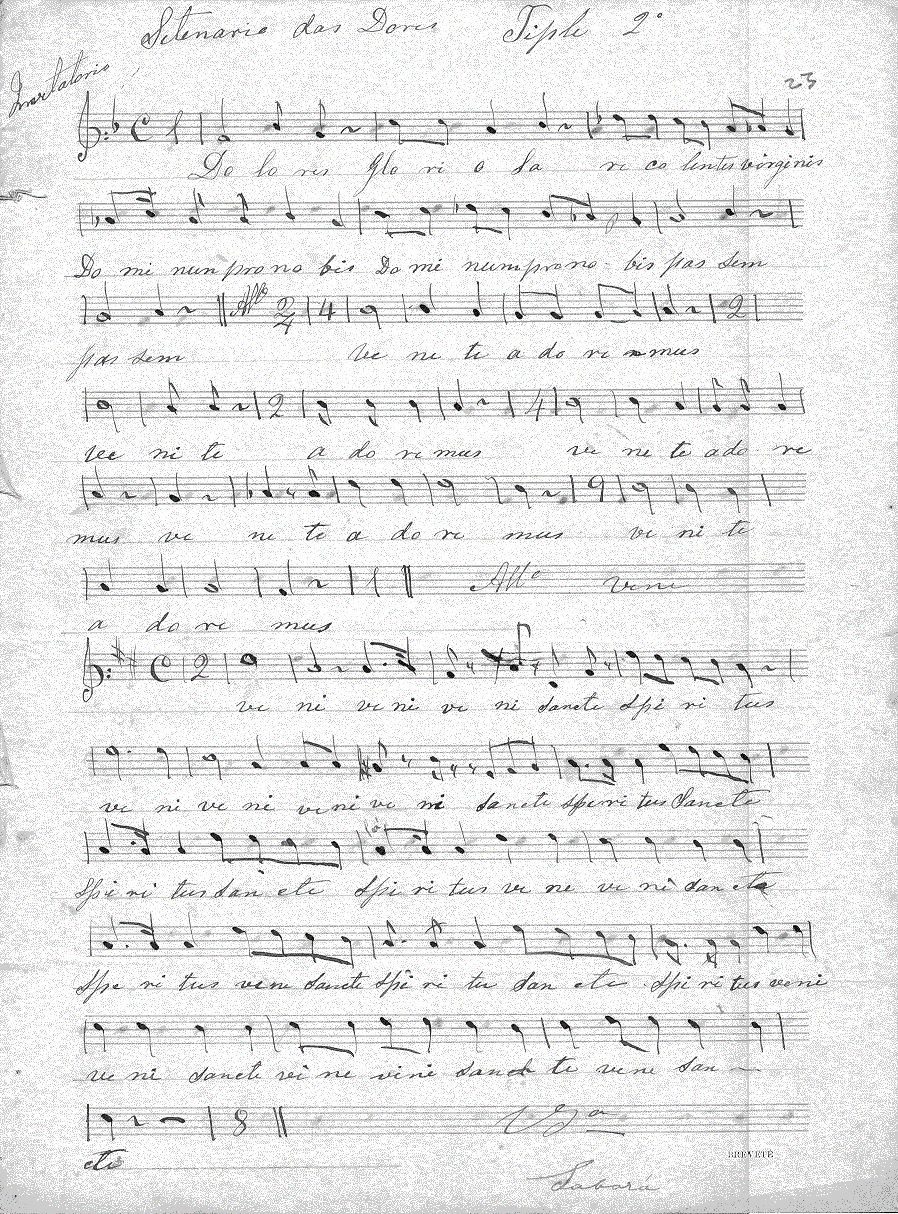 Setenario das Dores Tiple 2º
Invitatorio
23
Do lo ris glo ri o sa re co lentes virginis
Do mi num pro no bis Do mi num pro no - bis pas sem
Allº 2/4 4 2
pas sem ve ne te a do re mus
2 4
ve ni te a do re mus ve ne te ado re
mus ve ne te a do re mus ve ni te
Allº veni
a do re mus
C 2
ve ni ve ni ve ni sancte Spi ri tus
ve ni ve ni ve ni ve ni sancte Spi ri tus Sancte
Spi ri tus San cte Spi ri tus ve ne ve ni san cte
Spi ri tus vene Sancte Spi ri tu San cte Spi ri tus veni
ve ni sancte vi ne vini sanc te vene San
8
cte
BREVETÉ
Sabará